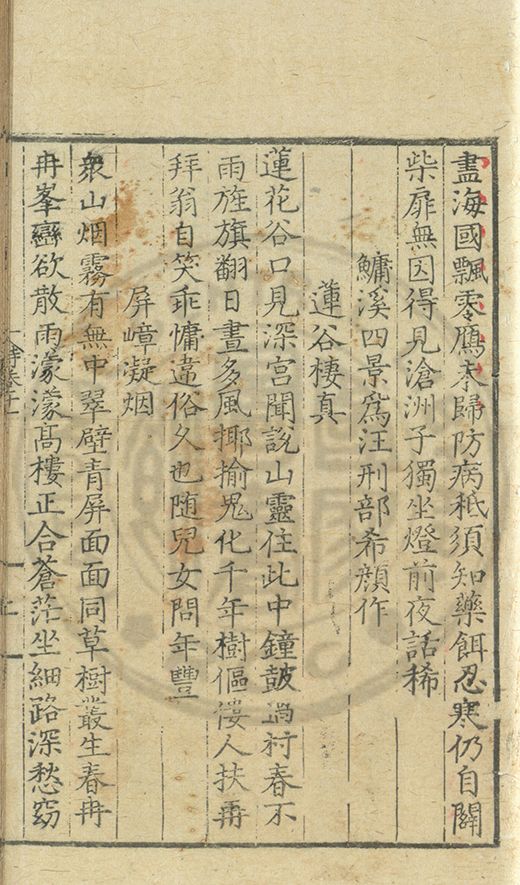 盡海國飄零鴈未歸防病秪須知藥餌忍寒仍自關
柴扉無因得見滄洲子獨坐燈前夜話稀
鱅溪四景爲汪刑部希顏作
蓮谷棲真
蓮花谷口見深宮聞說山靈住此中鐘皷過村春不
雨旌旗翻日晝多風揶揄鬼化千年樹傴僂人扶再
拜翁自笑乖慵違俗久也随兒女問年豐
屏嶂凝烟
衆山烟霧有無中翠壁青屏面面同草樹叢生春冉
冉峯巒欲散雨濛濛髙樓正合蒼茫坐細路深愁窈